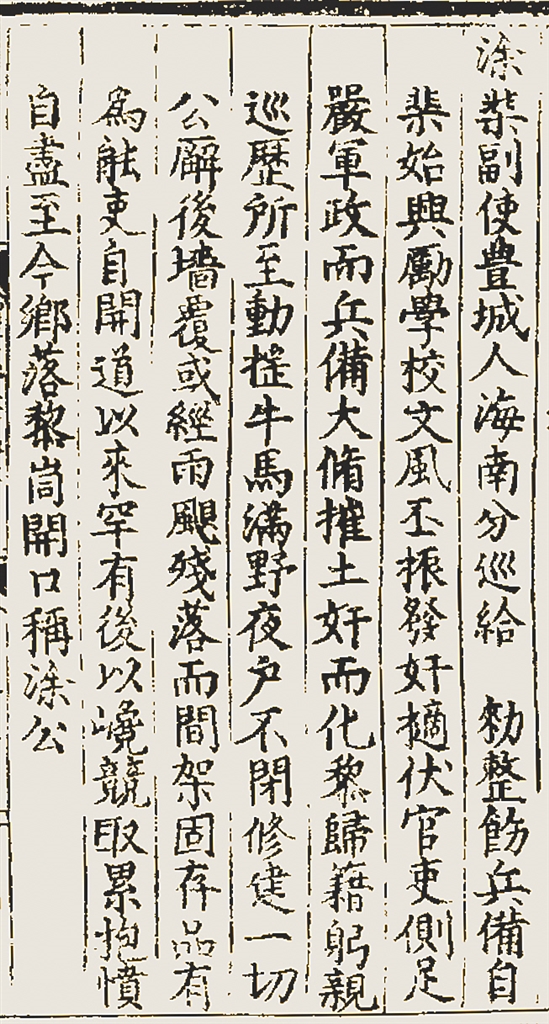 涂棐副使豊城人海南分巡給　勑整飭兵備自
棐始興勵學校文風丕振發奸擿伏官吏側足
嚴軍政而兵備大脩摧土奸而化黎歸籍躬親
巡歷所至動搖牛馬滿野夜户不閉修建一切
公廨後墻覆或經雨颶殘落而間架固存品有
為能吏自開道以來罕有後以嶢競取累抱憤
自盡至今鄉落黎峝開口稱涂公